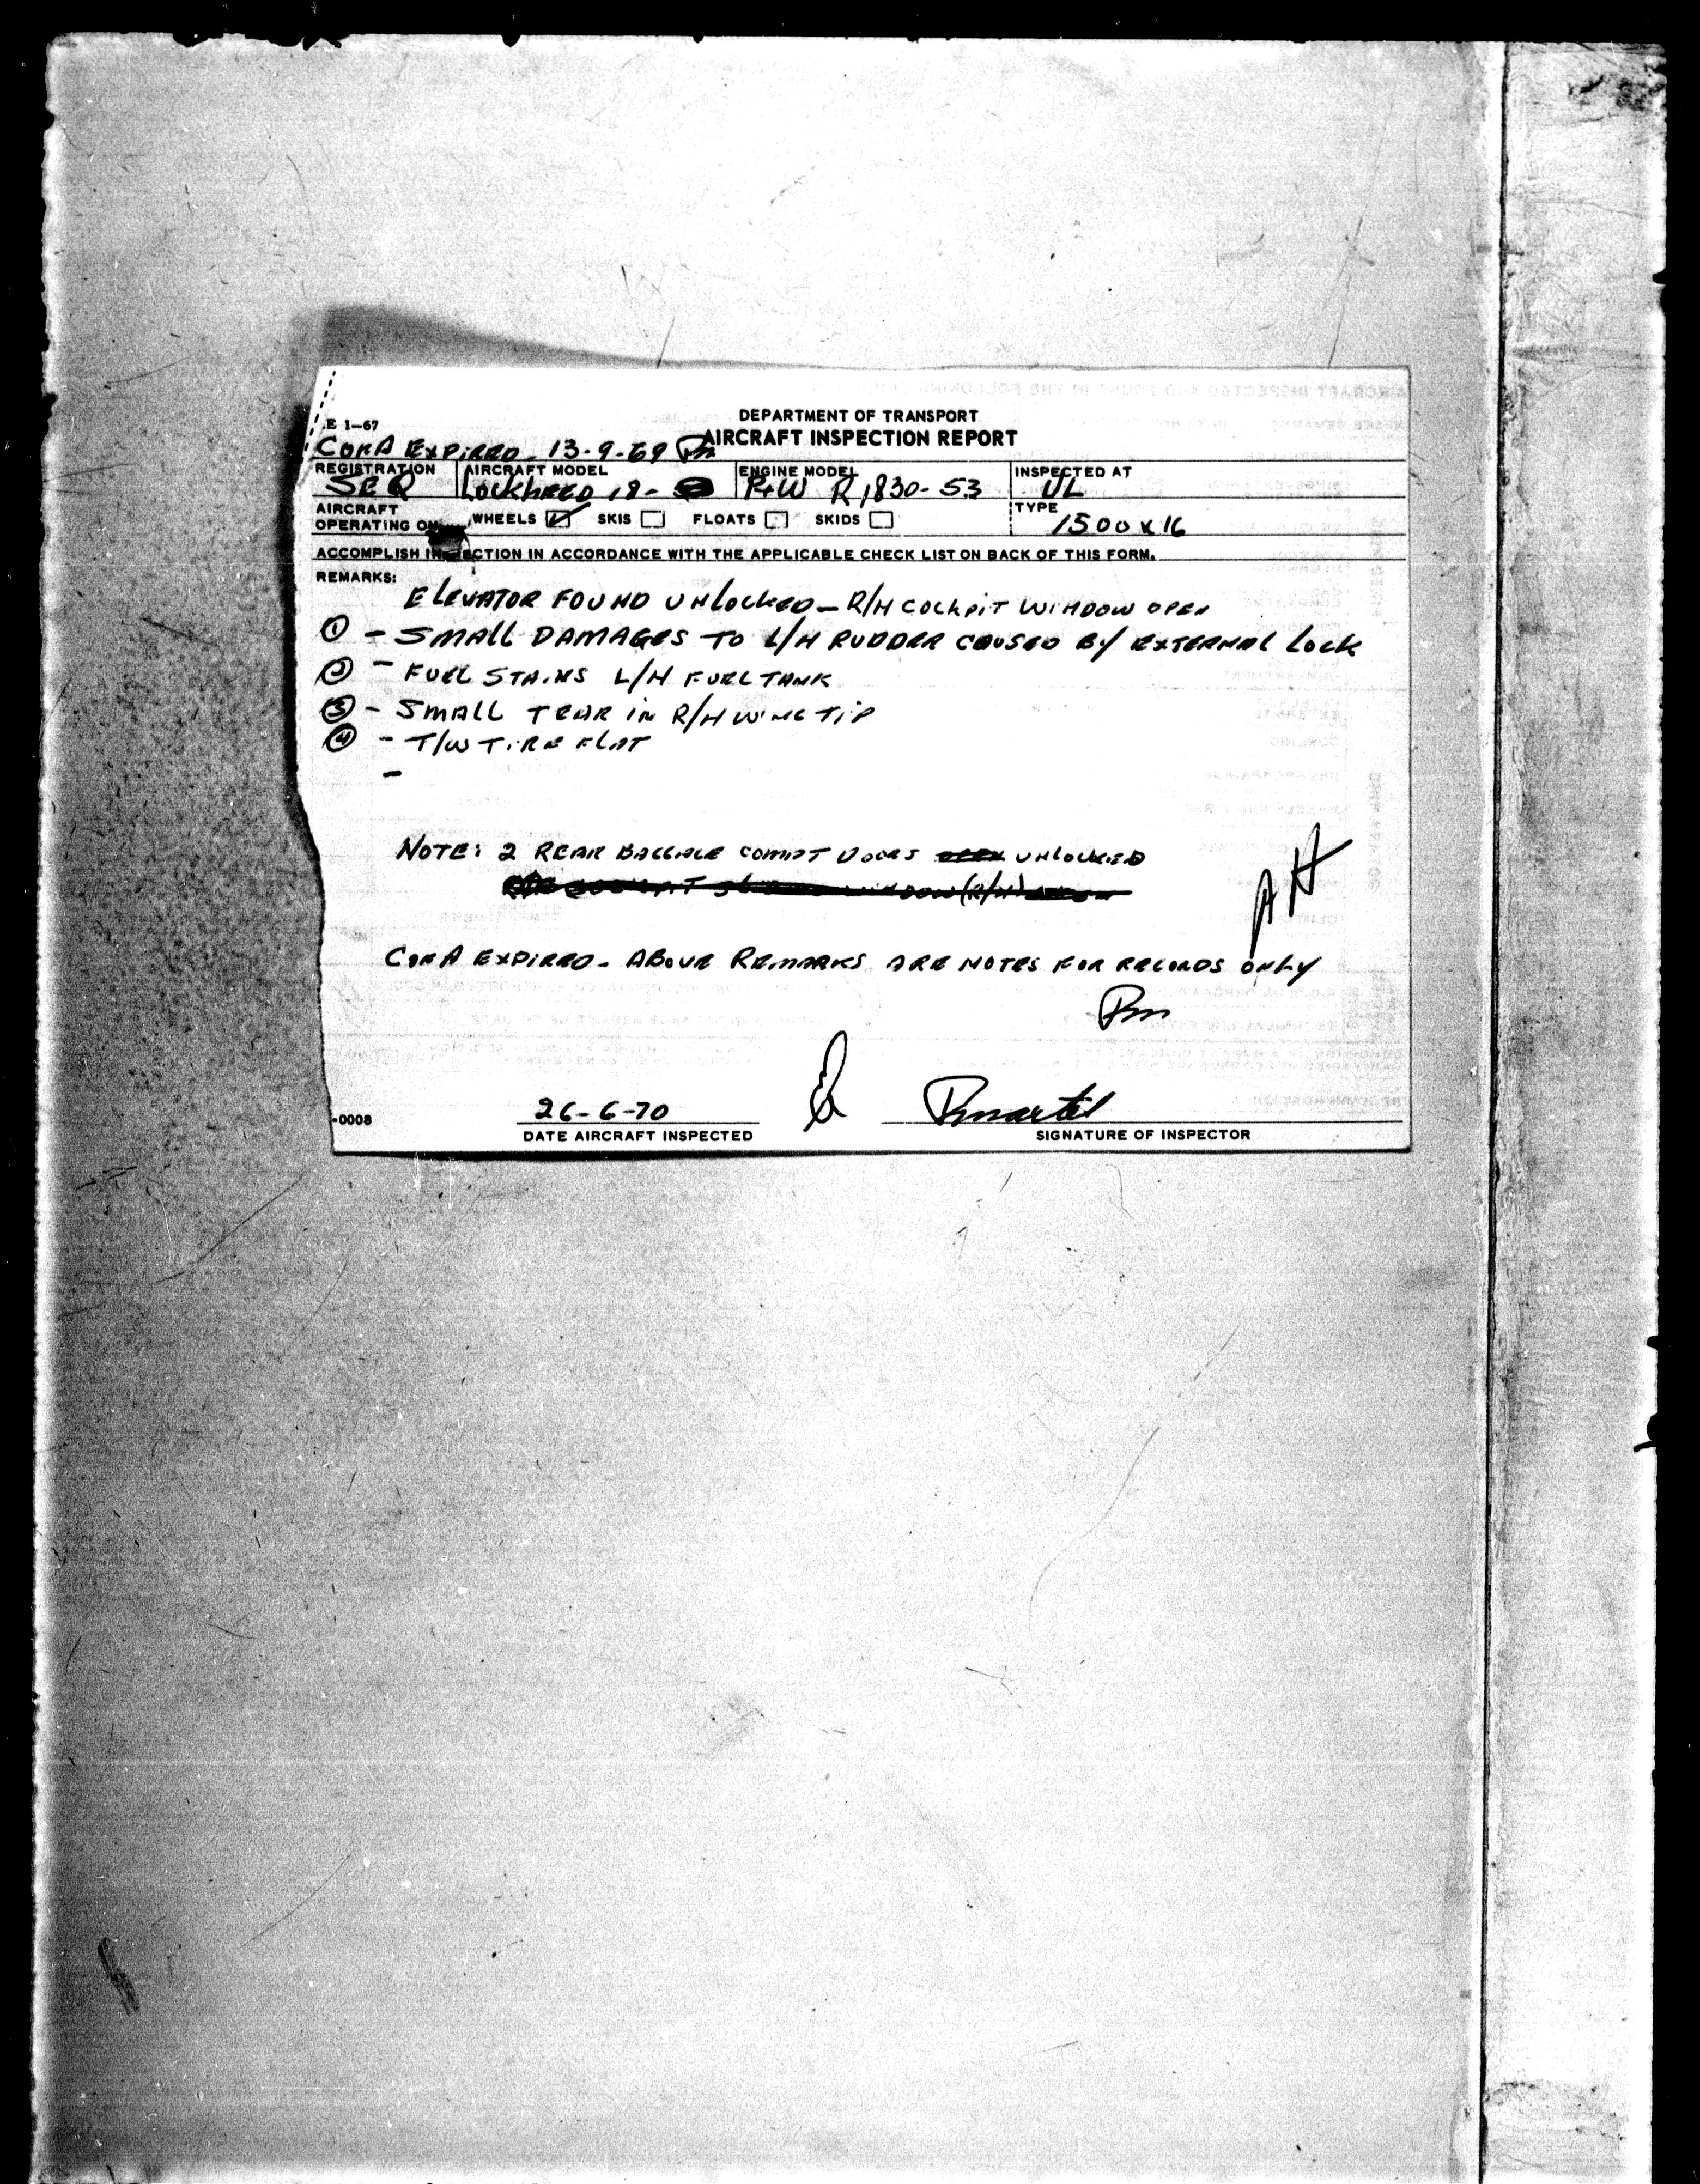 DEPARTMENT OF TRANSPORT
E 1-67
AIRCRAFT INSPECTION REPORT
C OF A EXPIRED - 13-9-69 Pm
REGISTRATION AIRCRAFT MODEL ENGINE MODEL INSPECTED AT
SEQ LOCKHEED 18- P+W R1830-53 UL
AIRCRAFT OPERATING ON WHEELS SKIS FLOATS SKIDS TYPE
1500 x 16
ACCOMPLISH INSPECTION IN ACCORDANCE WITH THE APPLICABLE CHECK LIST ON BACK OF THIS FORM.
REMARKS:
ELEVATOR FOUND UNLOCKED - R/H COCKPIT WINDOW OPEN
① - SMALL DAMAGES TO L/H RUDDER CAUSED BY EXTERNAL LOCK
② - FUEL STAINS L/H FUEL TANK
③ - SMALL TEAR IN R/H WING TIP
④ - T/W TIRE FLAT
-
NOTE: 2 REAR BAGGAGE COMPT DOORS UNLOCKED
WINDOW (R/H)
AH
C OF A EXPIRED - ABOVE REMARKS ARE NOTES FOR RECORDS ONLY
Pm
26-6-70 Pmartel
-0008
DATE AIRCRAFT INSPECTED SIGNATURE OF INSPECTOR